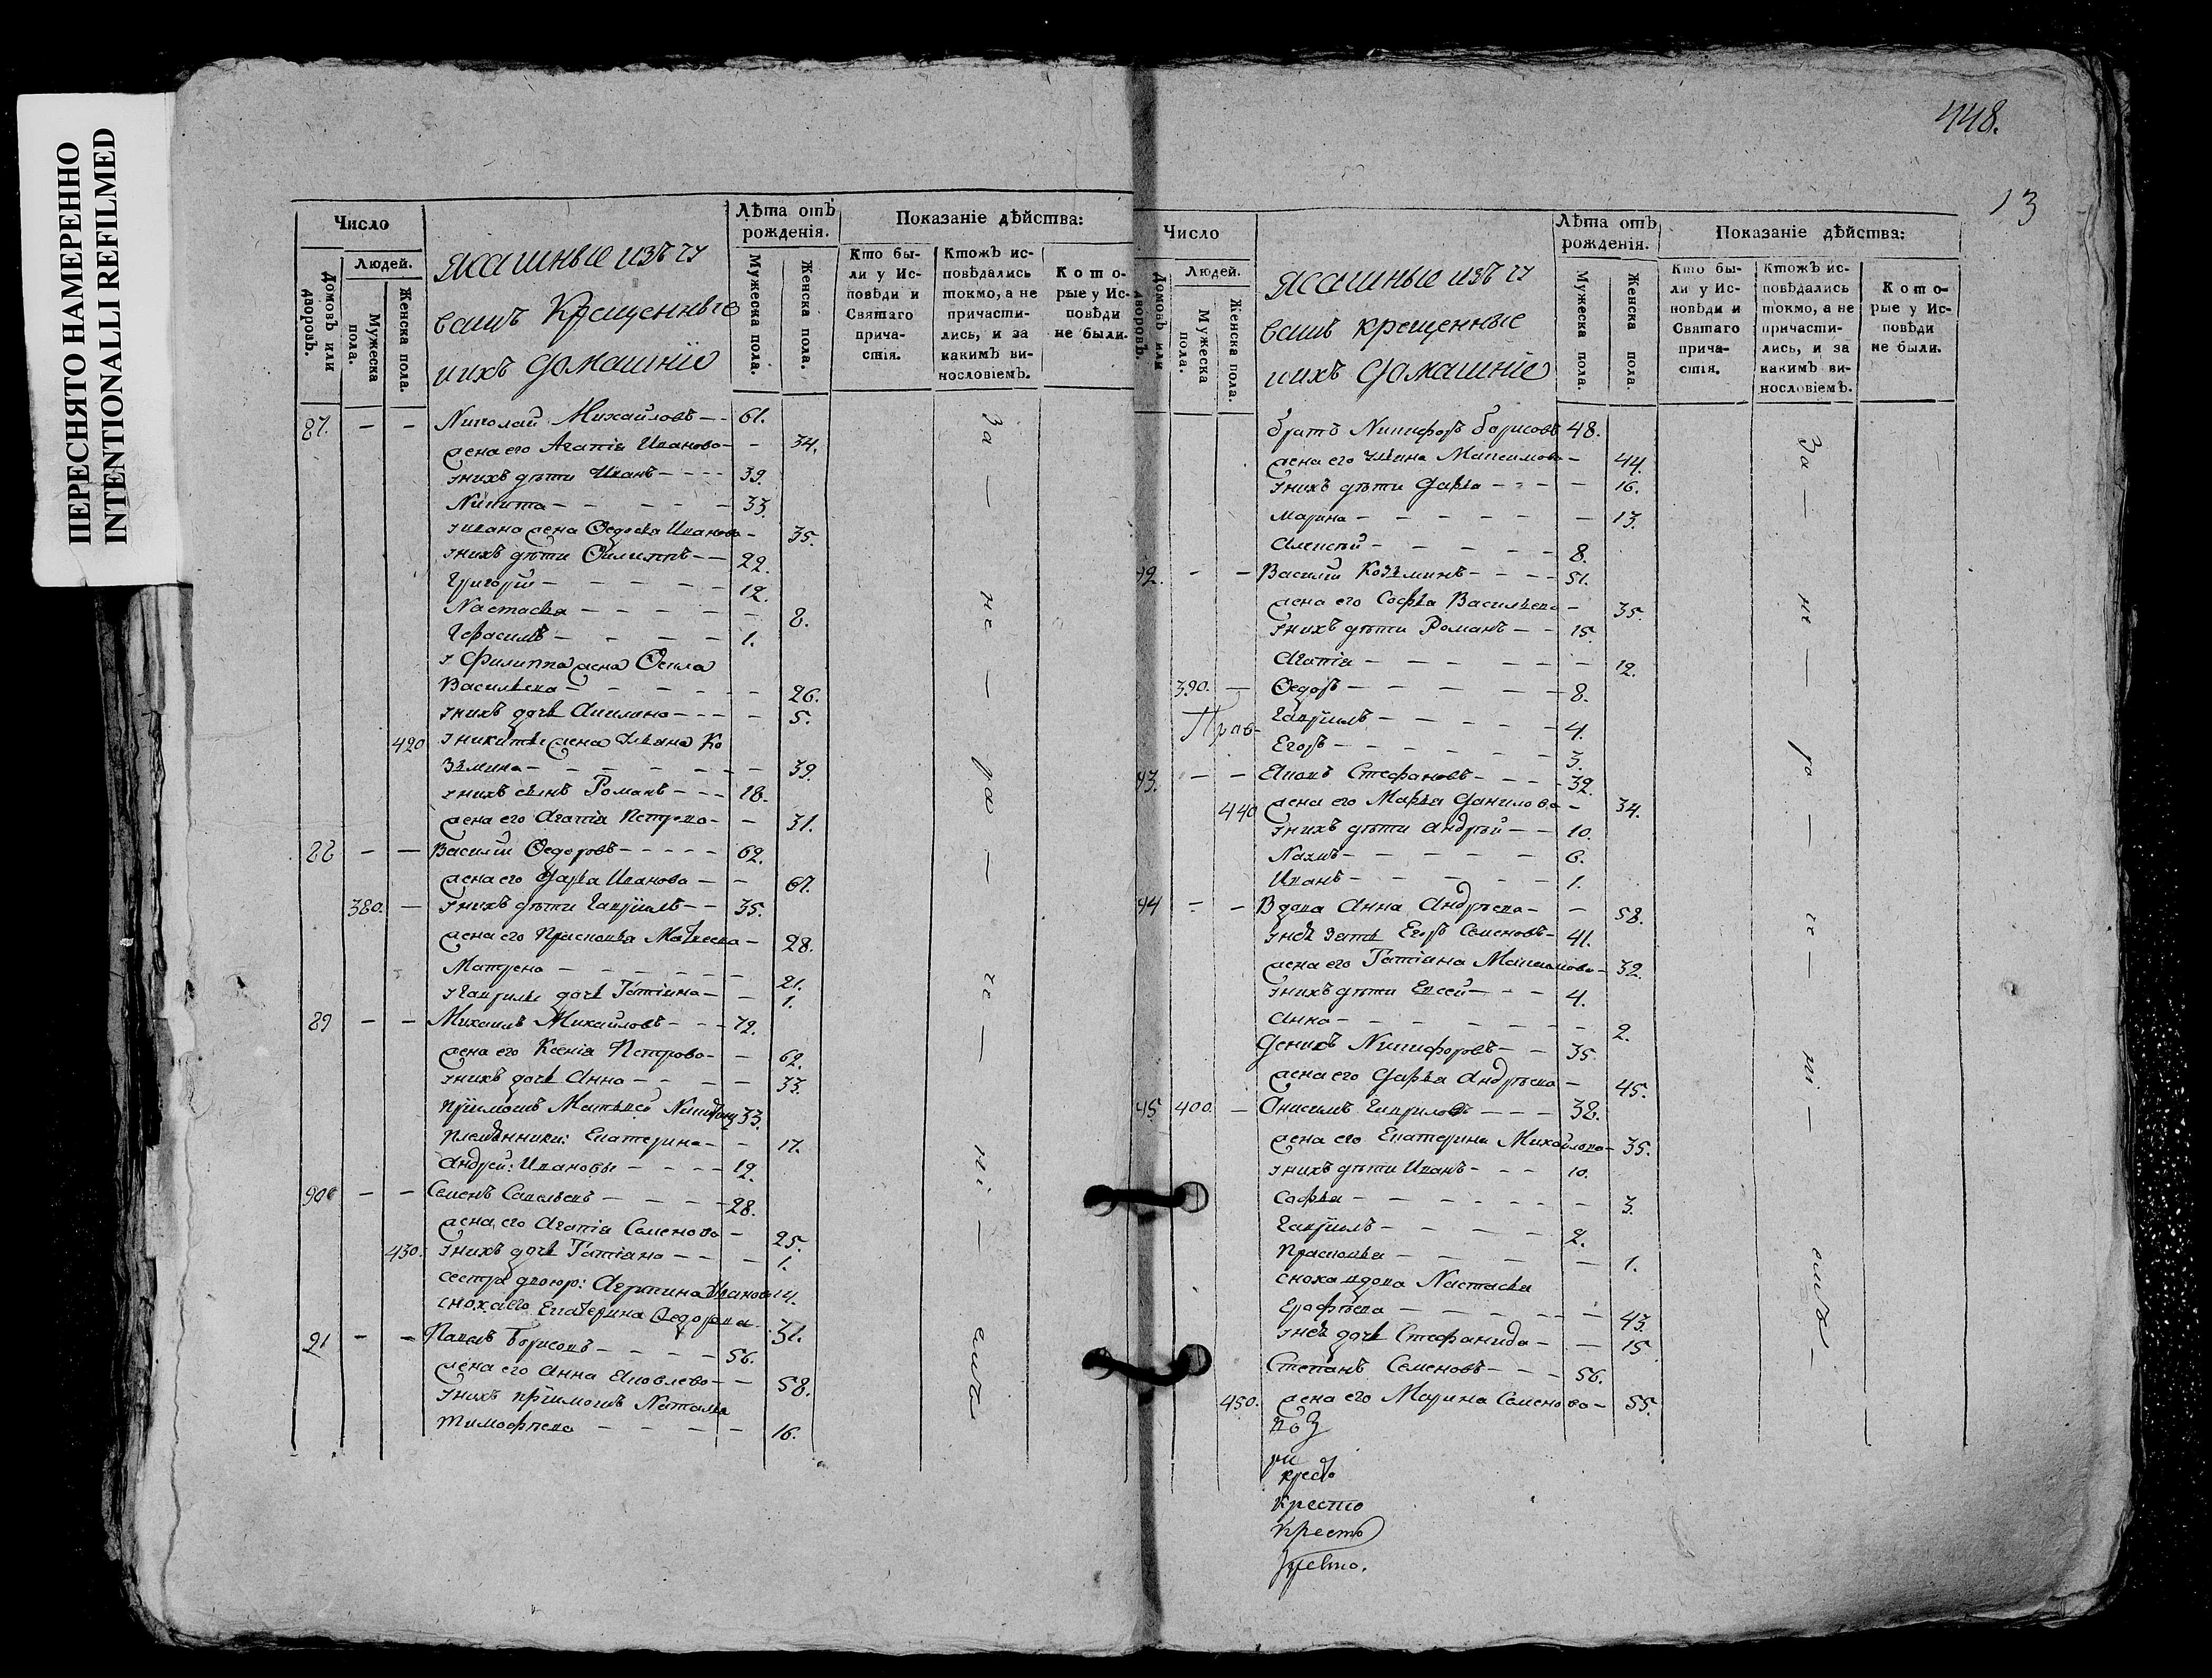 ПЕРЕСНЯТО НАМЕРЕННО
INTENTIONALLI REFILMED
448.
13
Число
Людей.
Домовъ или дворовъ.
Мужеска пола.
Женска пола.
Ясашные изъ чу
вашъ Крещенные
ихъ домашніе
Лѣта отъ рожденія.
Мужеска пола.
Женска пола.
Показаніе дѣйства:
Кто бы-
ли у Ис-
повѣди и
Святаго
прича-
стія.
Ктожъ ис-
повѣдались
токмо, а не
причасти-
лись, и за
какимъ ви-
нословіемъ.
Кото-
рые у Ис-
повѣди
не были.
87. — — Николай Михайловъ — 61.
жена его Агапія Иванова — 34.
у нихъ дѣти Иванъ — 39.
Никита — 33.
у Ивана жена Ѳедосья Иванова — 35.
у нихъ дѣти Филиппъ — 22.
Григорій — 12.
Настасья — 8.
Герасимъ — 1.
у Филиппа жена Ѳекла
Васильева — 26.
у нихъ дочь Акилина — 5.
420 у Никиты жена Ульяна Ко
зьмина — 39.
у нихъ сынъ Романъ — 18.
жена его Агапія Петрова — 31.
88 — — Василій Ѳедоровъ — 62.
жена его Дарья Иванова — 67.
380. — у нихъ дѣти Гаврiилъ — 35.
жена его Прасковья Матвеева — 28.
Матрена — 21.
у Гаврилы дочь Татіана — 1.
89 — — Михаилъ Михайловъ — 72.
жена его Ксенія Петрова — 62.
у нихъ дочь Анна — 33.
пріимышъ Матвей 33.
племянники: Екатерина — 17.
Андрей: Ивановы — 12.
90 — — Семенъ Савельевъ — 28.
жена его Агапія Семенова — 25.
430. у нихъ дочь Татіана — 1.
сестра двоюр: Иванова 14.
сноха его Екатерина Ѳедорова 31.
91 — — Павелъ Борисовъ — 56.
жена его Анна Яковлева — 58.
у нихъ пріимышъ Наталья
Тимофеева — 16.
За — не — ра — че — ні — емъ
Число
Людей.
Домовъ или дворовъ.
Мужеска пола.
Женска пола.
Ясашные изъ чу
вашъ крещенные
ихъ домашніе
Лѣта отъ рожденія.
Мужеска пола.
Женска пола.
Показаніе дѣйства:
Кто бы-
ли у Ис-
повѣди и
Святаго
прича-
стія.
Ктожъ ис-
повѣдались
токмо, а не
причасти-
лись, и за
какимъ ви-
нословіемъ.
Кото-
рые у Ис-
повѣди
не были.
братъ Никифоръ Борисовъ 48.
жена его Максимова — 44.
у нихъ дѣти Дарья — 16.
Марина — 13.
Алексѣй — 8.
92. — — Василій Козьминъ — 51.
жена его Софья Васильева — 35.
у нихъ дѣти Романъ — 15.
Агапія — 12.
390. — Ѳедоръ — 8.
Гаврiилъ — 4.
Егоръ — 3.
93. — — Яковъ Стефановъ — 32.
440 жена его Марья Данилова — 34.
у нихъ дѣти Андрей — 10.
6.
Иванъ — 1.
94 — — Вдова Анна Андреева — 58.
у неѣ зять Егоръ Семеновъ — 41.
жена его Татіана Максимова — 32.
у нихъ дѣти Евсей — 4.
Анна — 2.
Денисъ Никифоровъ — 35.
жена его Дарья Андреева — 45.
95 400. — Онисимъ Гавриловъ — 38.
жена его Екатерина Михайлова — 35.
у нихъ дѣти Иванъ — 10.
Софья — 3.
Гаврiилъ — 2.
Прасковья — 1.
сноха вдова Настасья
Ерофеева — 43.
у неѣ дочь Стефанида — 15
Степанъ Семеновъ — 56.
450. жена его Марина Семенова — 55.
За — не — ра — че — ні — емъ —
Кресто
Кресто